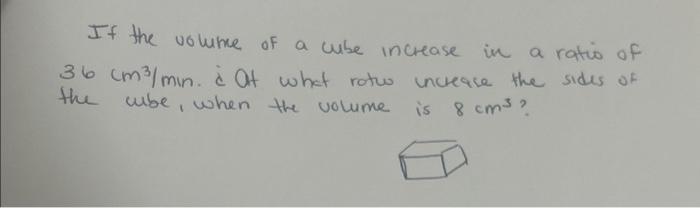 If the volume of a cube increase in a ratio of
36 cm³/min. ¿ At what ratio increace the sides of
the cube, when the volume is 8 cm³?